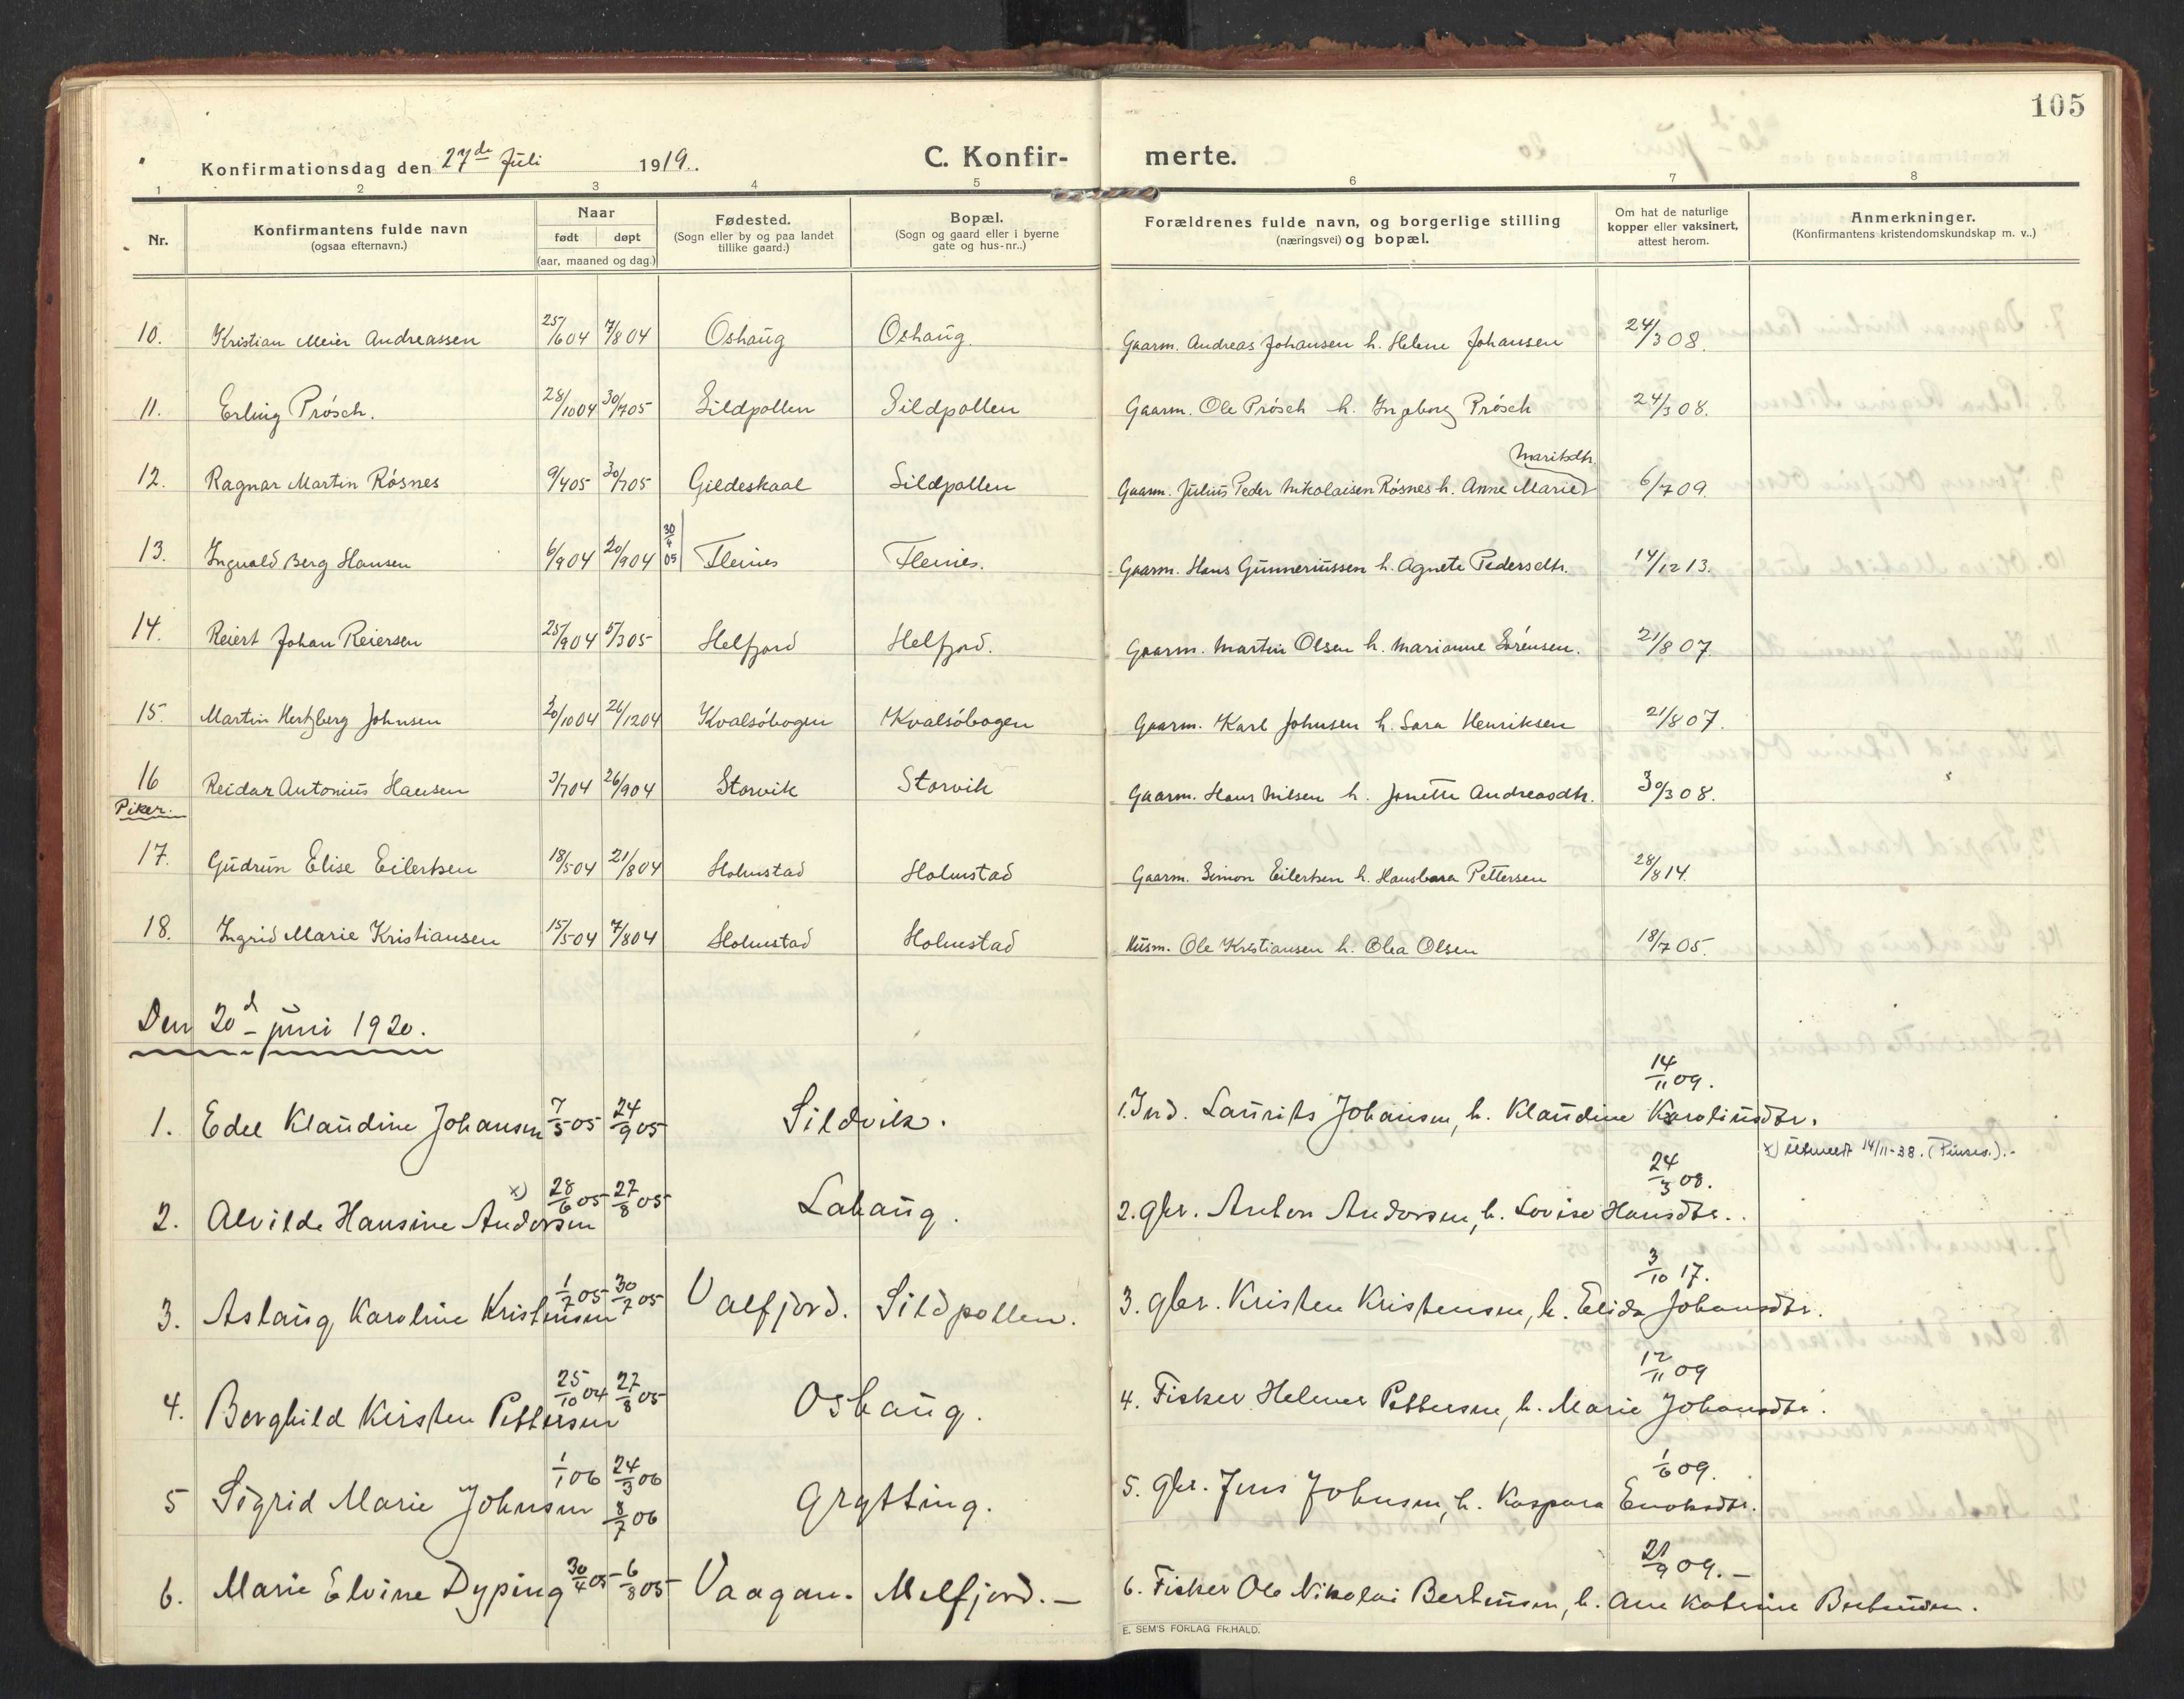 105
Konfirmationsdag den 27de Juli 1919.
C. Konfir- merte.
1 2 3 4 5 6 7 8
Nr.
Konfirmantens fulde navn
(ogsaa efternavn.)
Naar
født døpt
(aar, maaned og dag.)
Fødested.
(Sogn eller by og paa landet
tillike gaard.)
Bopæl.
(Sogn og gaard eller i byerne
gate og hus-nr..)
Forældrenes fulde navn, og borgerlige stilling
(næringsvei) og bopæl.
Om hat de naturlige
kopper eller vaksinert,
attest herom.
Anmerkninger.
(Konfirmantens kristendomskundskap m. v..)
10. Kristian Meier Andreassen 25/6 04 7/8 04 Oshaug Oshaug. Gaarm. Andreas Johansen h. Helene Johansen 24/3 08.
11. Erling Prösch. 28/10 04 30/7 05 Sildpollen Sildpollen Gaarm. Ole Prösch h. Ingeborg Prösch 24/3 08.
Maritsdtr.
12. Ragnar Martin Rösnes 9/4 05 30/7 05 Gildeskaal Sildpollen Gaarm. Julius Peder Nikolaisen Rösnes h. Anne Marie 6/7 09.
13. Ingvald Berg Hansen 6/9 04 20/9 04 30/4 05 Fleines Fleines. Gaarm. Hans Gunneriussen h. Agnete Pedersdtr. 14/12 13.
14. Reiert Johan Reiersen 25/9 04 5/3 05 Helfjord Helfjord. Gaarm. Martin Olsen h. Marianne Sörensen. 21/8 07.
15. Martin Hertzberg Johnsen 30/10 04 26/12 04 Kvalsöbogen Kvalsöbogen Gaarm. Karl Johnsen h. Sara Henriksen 21/8 07.
16 Reidar Antonius Hansen 3/7 04 26/9 04 Storvik Storvik Gaarm. Hans Nilsen h. Jonette Andreasdtr. 30/3 08.
Piker.
17. Gudrun Elise Eilertsen 18/5 04 21/8 04 Holmstad Holmstad Gaarm. Simon Eilertsen h. Hansbara Pettersen 28/8 14.
18. Ingrid Marie Kristiansen 15/5 04 7/8 04 Holmstad Holmstad Husm. Ole Kristiansen h. Olea Olsen 18/7 05.
Den 20d juni 1920.
1. Edel Klaudine Johansen 7/5 05 24/9 05 Sildvik. 1. Ind. Laurits Johansen, h. Klaudine Karoliusdtr. 14/11 09.
x) Utmeldt 14/11-38. (Pinsev.).-
2. Alvilde Hansine Andorsen x) 28/6 05 27/8 05 Lahaug. 2. gbr. Anton Andorsen, h. Lovise Hansdtr.. 24/3 08.
3. Aslaug Karoline Kristensen 1/2 05 30/7 05 Valfjord. Sildpollen. 3. gbr. Kristen Kristensen, h. Elida Johansdtr. 3/10 17.
4. Borghild Kirsten Pettersen 25/10 04 27/8 05 Oshaug. 4. Fisker Helmer Pettersen, h. Marie Johansdtr. 12/11 09
5 Sigrid Marie Johnsen 1/1 06 24/3 06 8/7 06 Grytting. 5. gbr. Jens Johnsen, h. Kaspara Enoksdtr. 1/6 09.
6. Marie Elvine Dyping 30/4 05 6/8 05 Vaagan. Melfjord.- 6. Fisker Ole Nikolai Berteusen, h. Ane Katrine Berteusen. 21/9 09.-
E. SEM'S FORLAG FR.HALD.